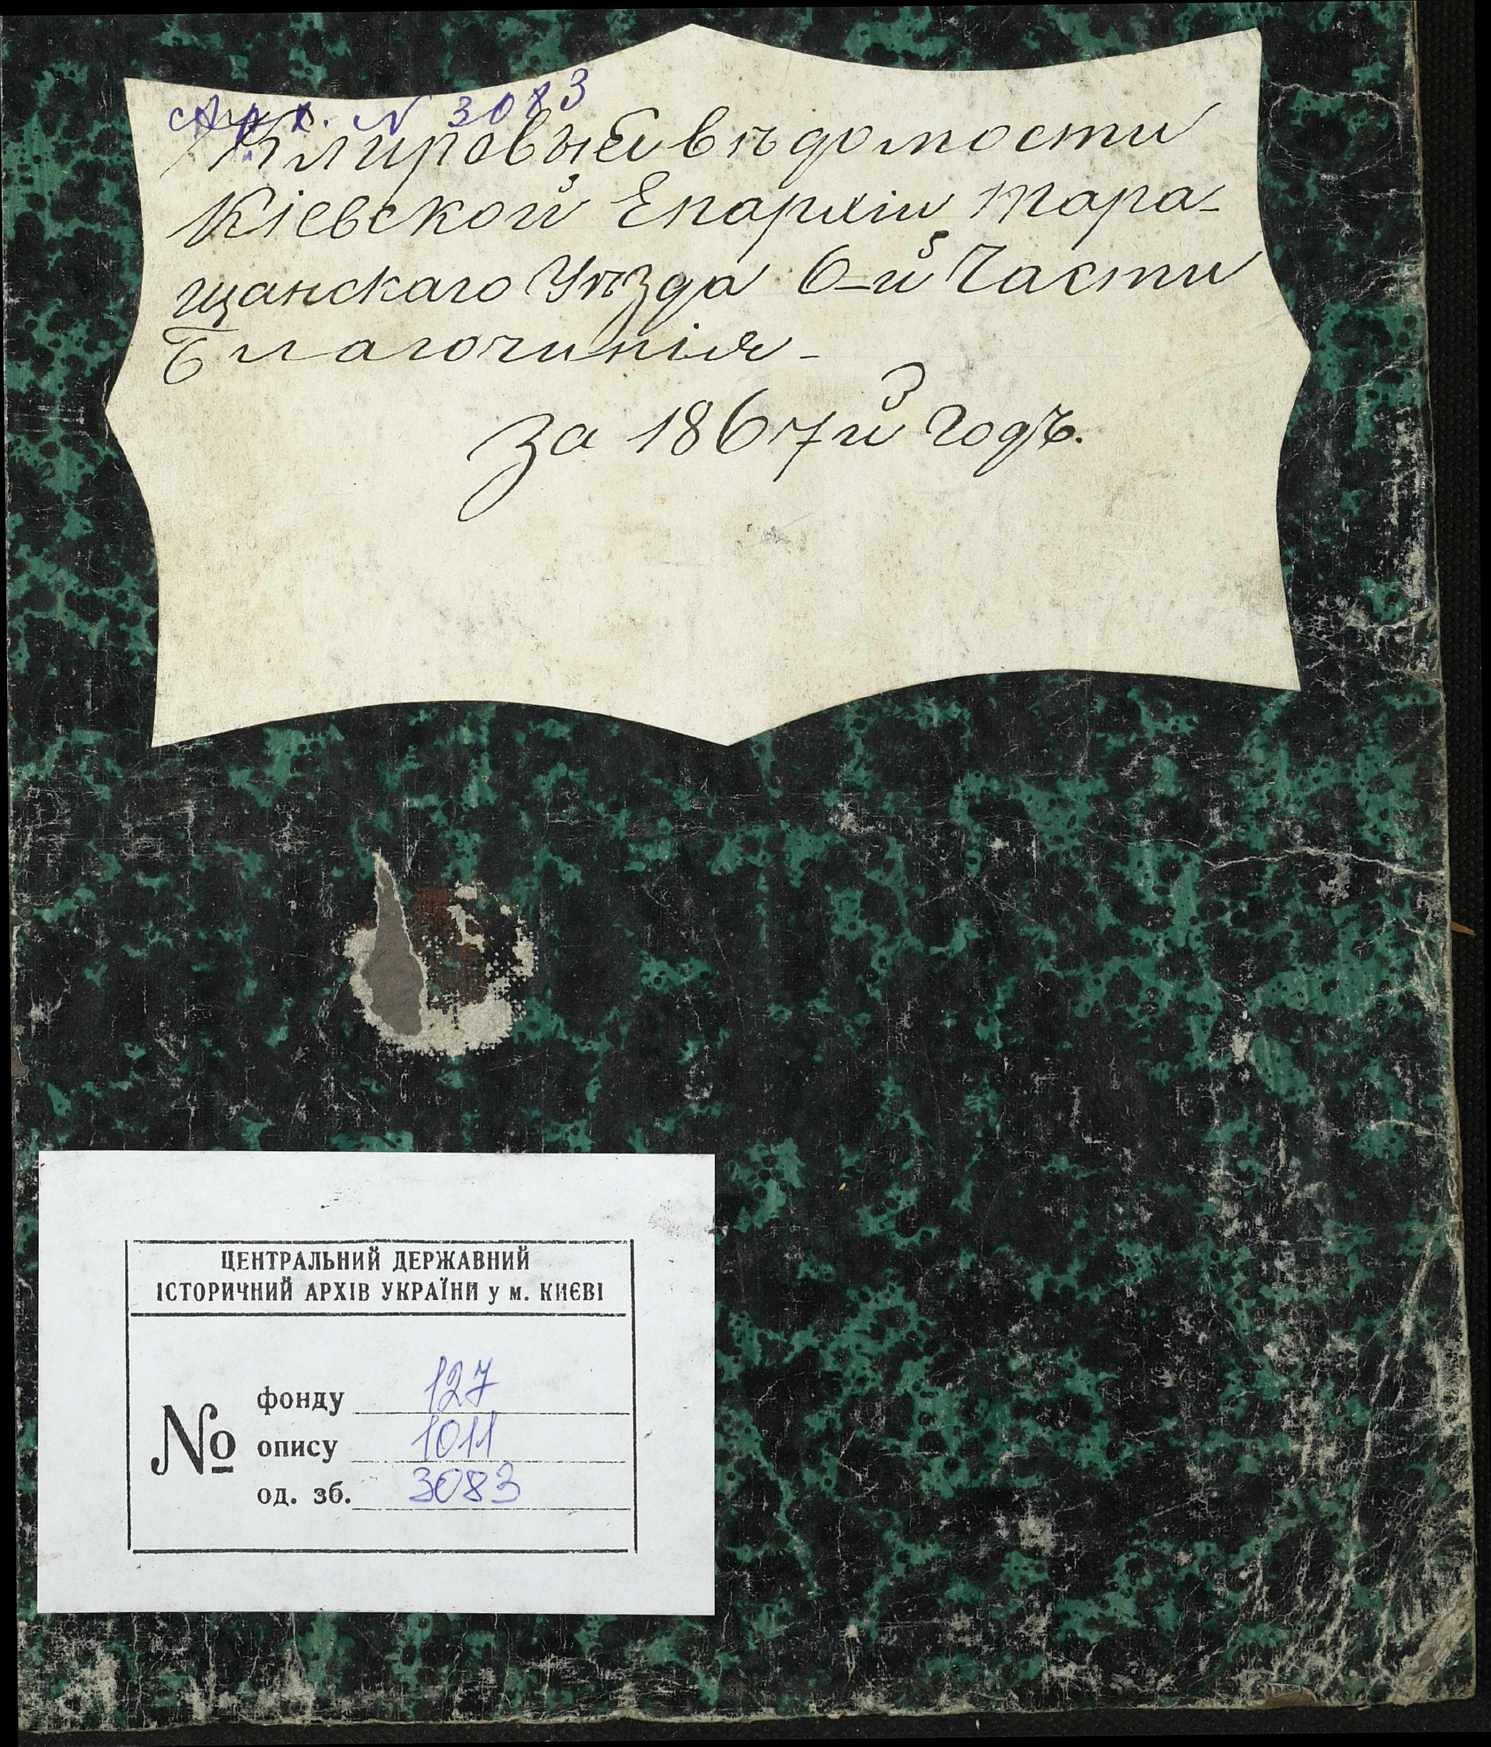 Арх. N 3083
Клировыя вѣдомости
Кіевской Епархіи тара-
щанскаго Уѣзда 6-й Части
Благочинія-
за 1867й годъ.
ЦЕНТРАЛЬНИЙ ДЕРЖАВНИЙ
ІСТОРИЧНИЙ АРХІВ УКРАЇНИ у м. КИЄВІ
№
фонду 127
опису 1011
од. зб. 3083